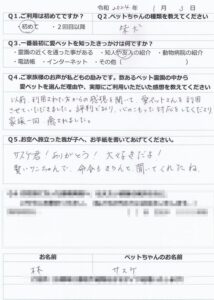 令和 2024 年 1 月 3 日
Q1.ご利用は初めてですか？
・初めて ・2回目以降
Q2.ペットちゃんの種類を教えてください
柴犬
Q3.一番最初に愛ペットを知ったきっかけは何ですか？
・霊園の近くを通った事がある ・知人や友人の紹介 ・動物病院の紹介
・電話帳 ・インターネット ・その他（ ）
Q4.ご家族様のお声が私どもの励みです。数あるペット霊園の中から
愛ペットを選んだ理由や、実際にご利用いただいた感想を教えてください
以前、利用された方からの感想を聞いて、愛ペットさんを利用
させていただきました。評判どおり、心のこもった対応をしてくださり
家族一同、癒されました。
Q5.お空へ旅立った我が子へ、お手紙を書いてあげてください
サスケ君！ありがとう！大好きだよ！
賢いワンちゃんで、今までちゃんと聞いてくれたね
お名前
ペットちゃんのお名前
林
サスケ